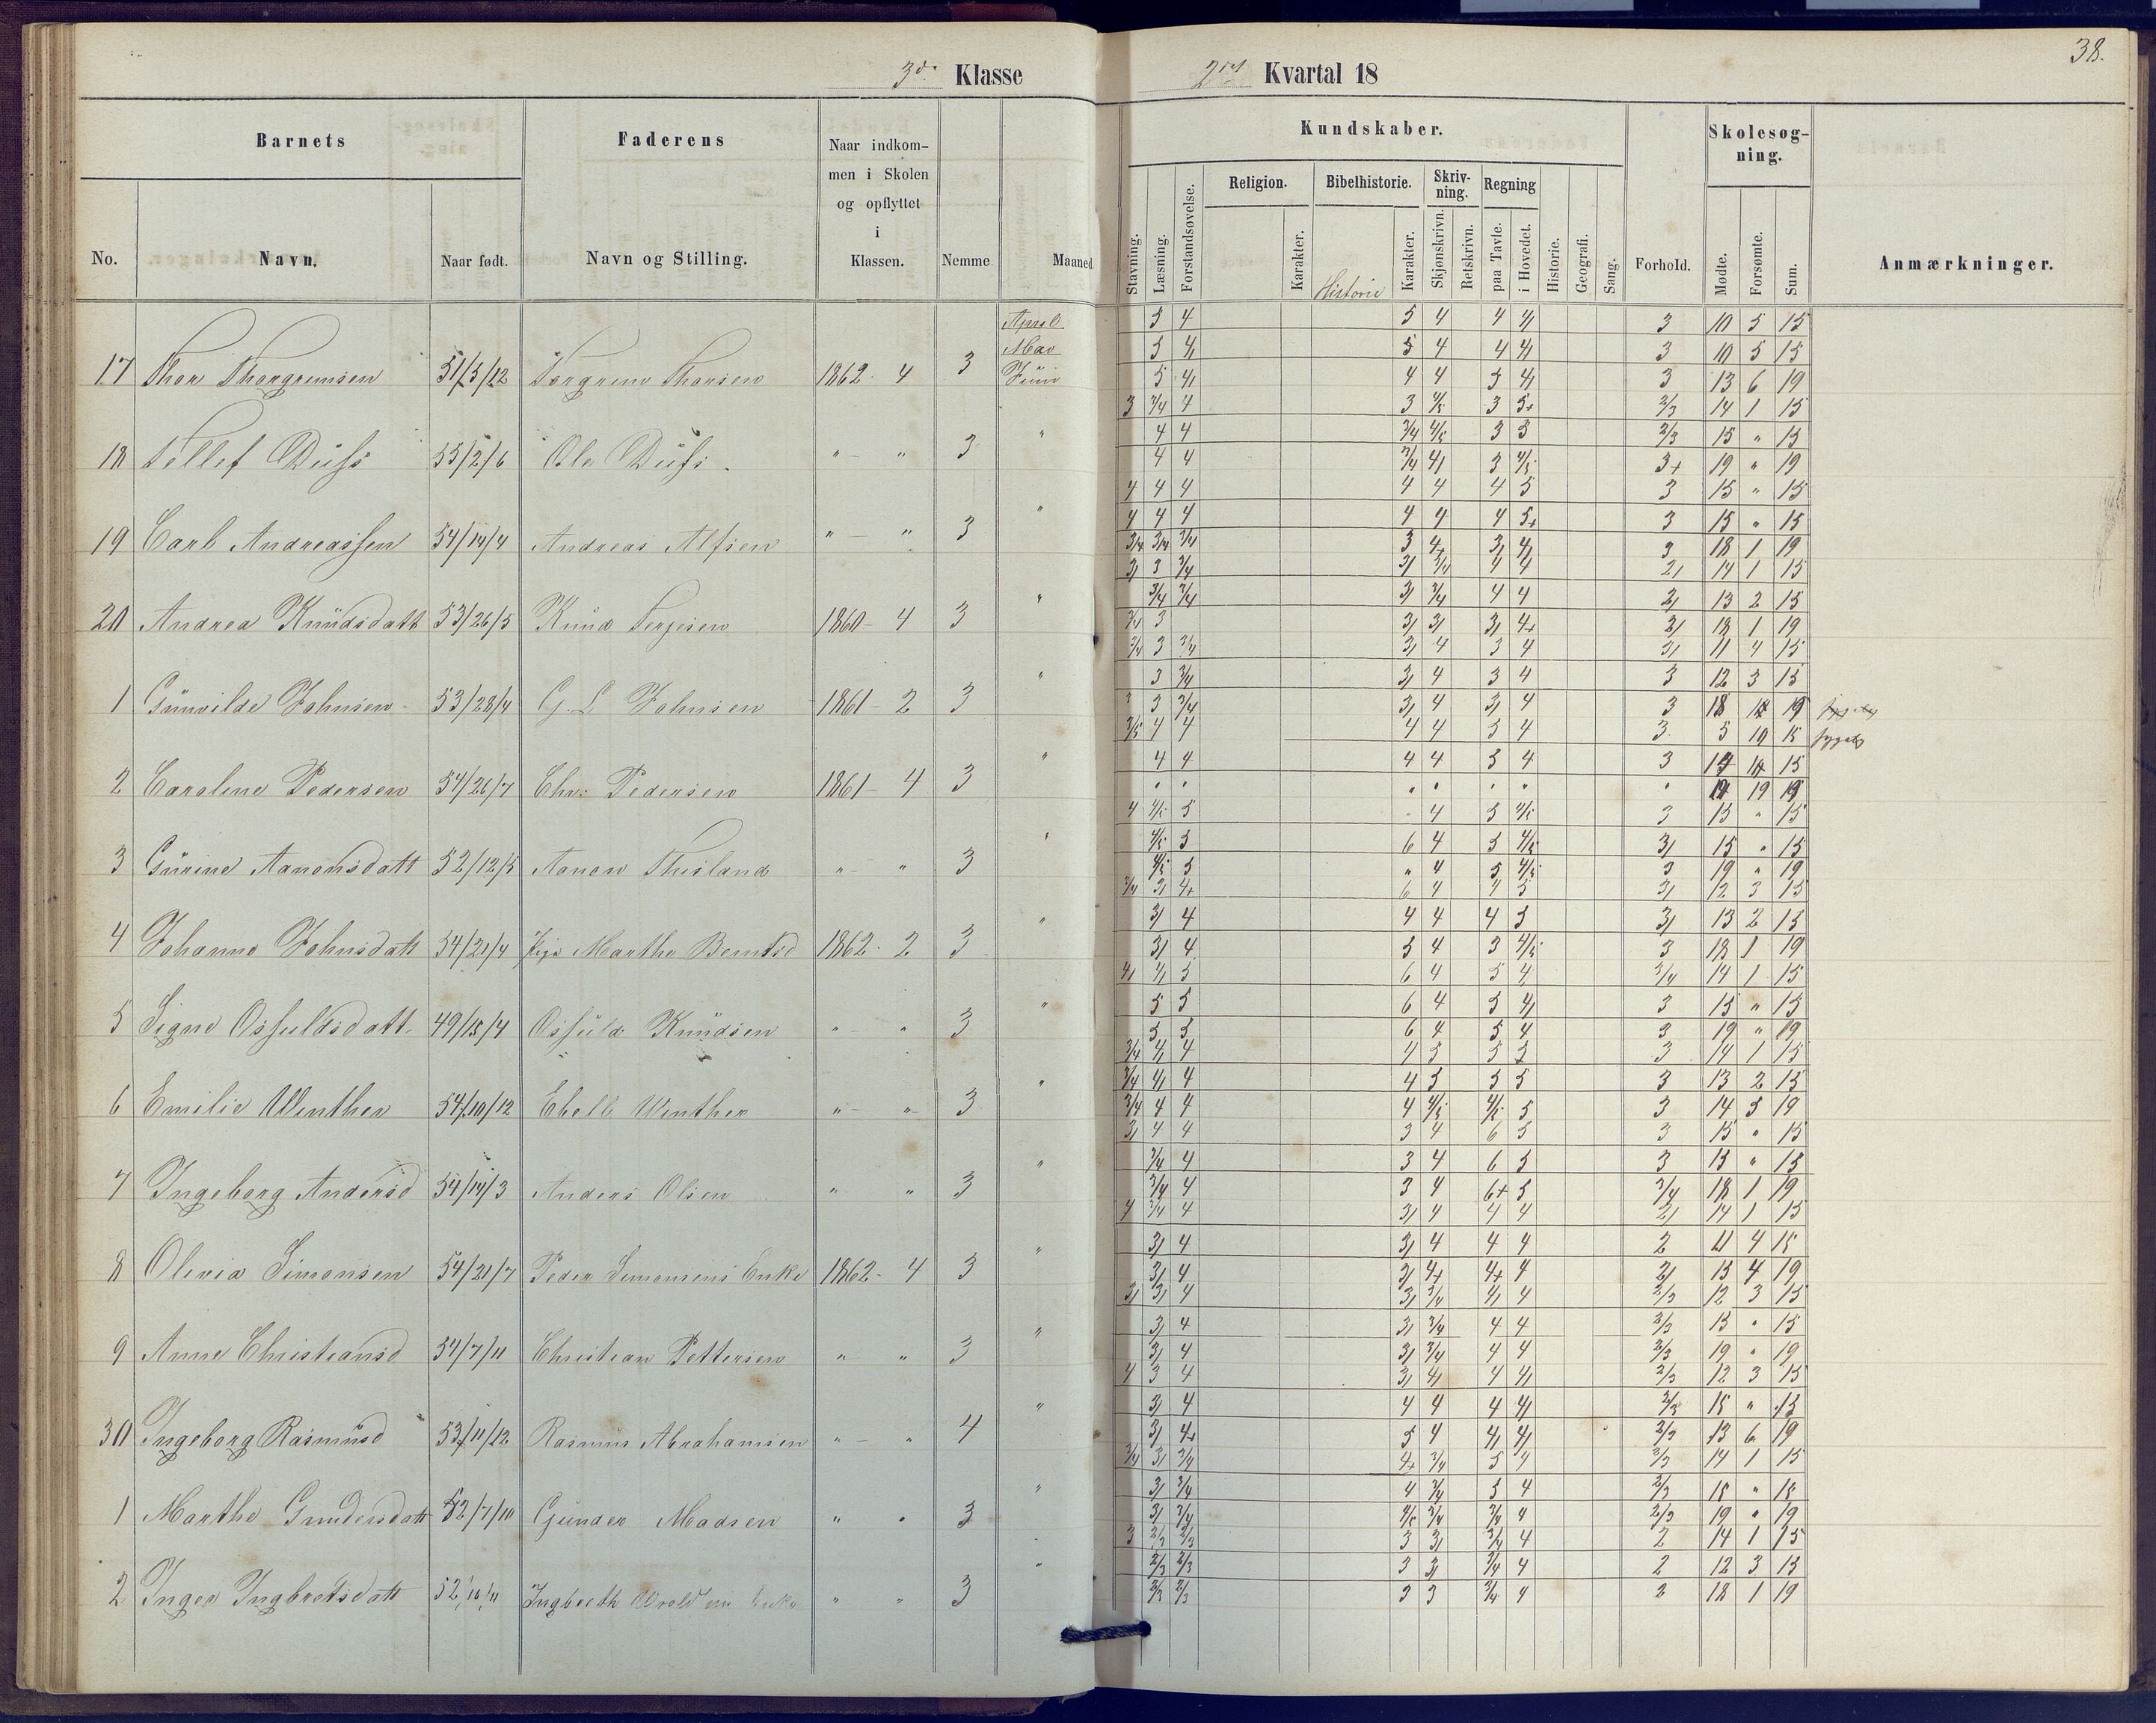 38.
3die Klasse
2det Kvartal 18
Barnets
Faderens
Naar indkom-
men i Skolen
og opflyttet
i
Klassen.
No.
Navn.
Naar født.
Navn og Stilling.
Nemme
Maaned
Kundskaber.
Skolesøg-
ning.
Religion.
Bibelhistorie.
Skriv-
ning.
Regning
Stavning.
Læsning.
Forstandsøvelse.
Karakter.
Historie
Karakter.
Skjønskrivn.
Retskrivn.
paa Tavle.
i Hovedet.
Historie.
Geografi.
Sang.
Forhold.
Mødte.
Forsømte.
Sum.
Anmærkninger.
April
Mai
Juni
17 Thor Thorgrimsen 51/5/12 Torgrim Thorsen 1862 - 4 3
18 Tellef Duss 55/2/6 Ole Duss. " - " 3 "
19 Carl Andreassen 54/14/4 Andreas Alfsen " - " 3 "
20 Andrea Knudsdatt 53/26/5 Knud Terjesen 1860 - 4 3 "
1 Gunvilde Johnsen 53/28/4 G. L Johnsen 1861 - 2 3 "
2 Caroline Pedersen 54/26/7 Chr: Pedersen 1861 - 4 3 "
3 Gurine Aanonsdatt 52/12/5 Aanon Thisland " - " 3 "
4 Johanne Johnsdatt 54/21/4 Pige Marthe Berntsd 1862 - 2 3 "
5 Signe Osfuldsdatt. 49/15/4 Osfuld Knudsen " " 3 "
6 Emilie Winther 54/10/12 Ebell Winther " - " 3 "
7 Ingeborg Andersd 54/14/3 Anders Olsen " " 3 "
8 Olevia Simonsen 54/21/7 Peder Simonsens Enke 1862 - 4 3 "
9 Anne Christiansd 54/7/11 Christian Pettersen " " 3 "
30 Ingeborg Rasmusd 53/11/12 Rasmus Abrahamsen " " 4 "
1 Marthe Gundersdatt 52/7/10 Gunder Madsen " " 3 "
2 Inger Ingbretsdatt 52/10/11 Ingbreth Enke " " 3 "
5 4 5 4 4 4/ 3 10 5 15
5 4/ 5 4 4 4/ 3 10 5 15
5 4/ 4 4 5 4/ 3 13 6 19
3 3/4 4 3 4/5 3 5+ 2/3 14 1 15
4 4 3/4 4/5 3 5 2/3 15 " 15
4 4 3/4 4/ 3 4/5 3+ 19 " 19
4 4 4 4 4 4 5 3 15 " 15
4 4 4 4 4 4 5+ 3 15 " 15
3/4 3/4 3/4 3 4+ 3/ 4/ 3 18 1 19
3/ 3 3/4 3/ 3/4 4 4 2/ 14 1 15
3/4 3/4 3/ 3/4 4 4 2/ 13 2 15
3/4 3 3/ 3/ 3/ 4+ 2/ 18 1 19
3/4 3 3/4 3/ 4 3 4 3/ 11 4 15
3 3/4 3/ 4 3 4 3 12 3 15
3 3 3/4 3/ 4 3/ 4 3 18 1 19
3/5 4 4 4 4 5 4 3 5 10 15 sygelig
4 4 4 4 5 4 3 15
" " " " " " " 19 19
4 4/5 5 " 4 5 4/5 3 15 " 15
4/5 5 6 4 5 4/5 3/ 15 " 15
4/5 5 " 4 5 4/5 3 19 " 19
3/4 3/ 4+ 6 4 4 5 3/ 12 3 15
3/ 4 4 4 4 5 3/ 13 2 15
3/ 4 5 4 3 4/5 3 18 1 19
4/ 4/ 5 6 4 5 4 3/4 14 1 15
5 5 6 4 5 4/ 3 15 " 15
5 5 6 4 5 4 3 19 " 19
3/4 4/ 4 4 5 5 5 3 14 1 15
3/4 4/ 4 4 5 5 5 3 13 2 15
3/4 4 4 4 4/5 4/5 5 3 14 5 19
3/ 4 4 3 4 6 5 3 15 " 15
3/4 4 3 4 6 5 3 15 " 15
3/4 4 3 4 6+ 5 3/4 18 1 19
4 3/4 4 3/ 4 4 4 2/ 14 1 15
3/ 4 3/ 4 4 4 2 11 4 15
3/ 4 3/ 4+ 4+ 4 2/ 15 4 19
3/ 3/ 4 3/ 3/4 4/ 4 2/3 12 3 15
3/ 4 3/ 3/4 4 4 2/3 15 " 15
3/ 4 3/ 3/4 4 4 2/3 19 " 19
4 3 4 3/ 4/ 4 4/ 2/3 12 3 15
3/ 4 4 4 4 4/ 2/3 15 " 15
3/ 4+ 5 4 4/ 4/ 2/3 13 6 19
3/4 3/ 3/4 4+ 3/4 5 4 2/3 14 1 15
3/ 3/4 4 3/4 5 4 2/3 15 " 15
3/ 3/4 4/5 3/4 3/4 4 2/3 19 " 19
3 2/3 2/3 3 3/ 3/4 4 2 14 1 15
2/3 2/3 3 3/ 3/4 4 2 12 3 15
2/3 2/3 3 3 3/4 4 2 18 1 19